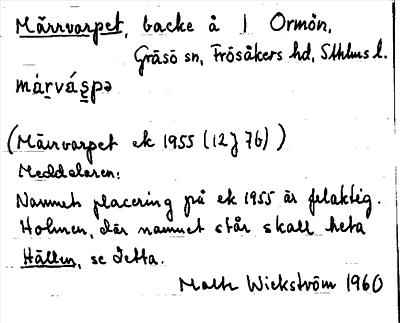 Märrvarpet, backe å | Ormön,
Gräsö sn, Frösåkers hd, Sthlms l.
má̱rvás̱pə
(Märrvarpet ek 1955 (12J 7b))
Meddelaren:
Namnets placering på ek 1955 är felaktig.
Holmen, där namnet står skall heta
Hällen, se detta.
Malte Wickström 1960